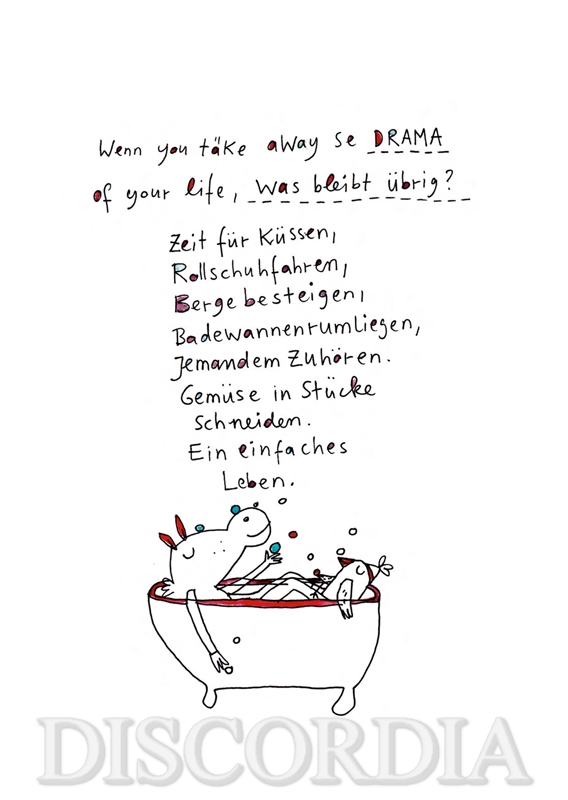 Wenn you täke away se DRAMA
of your life, was bleibt übrig?
Zeit für Küssen,
Rollschuhfahren,
Berge besteigen,
Badewannenrumliegen,
Jemandem Zuhören.
Gemüse in Stücke
Schneiden.
Ein einfaches
Leben.
DISCORDIA